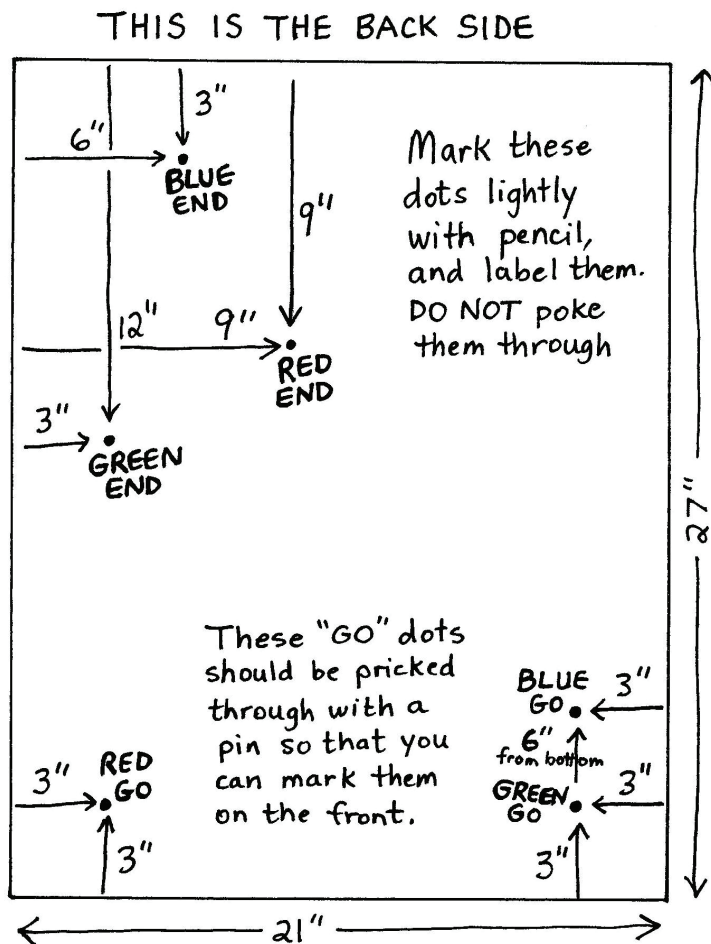 THIS IS THE BACK SIDE
3"
6"
BLUE
END
9"
Mark these
dots lightly
with pencil,
and label them.
DO NOT poke
them through
12"
9"
RED
END
3"
GREEN
END
27"
These "GO" dots
should be pricked
through with a
pin so that you
can mark them
on the front.
BLUE
GO
3"
6"
from bottom
3"
RED
GO
3"
GREEN
GO
3"
3"
21"